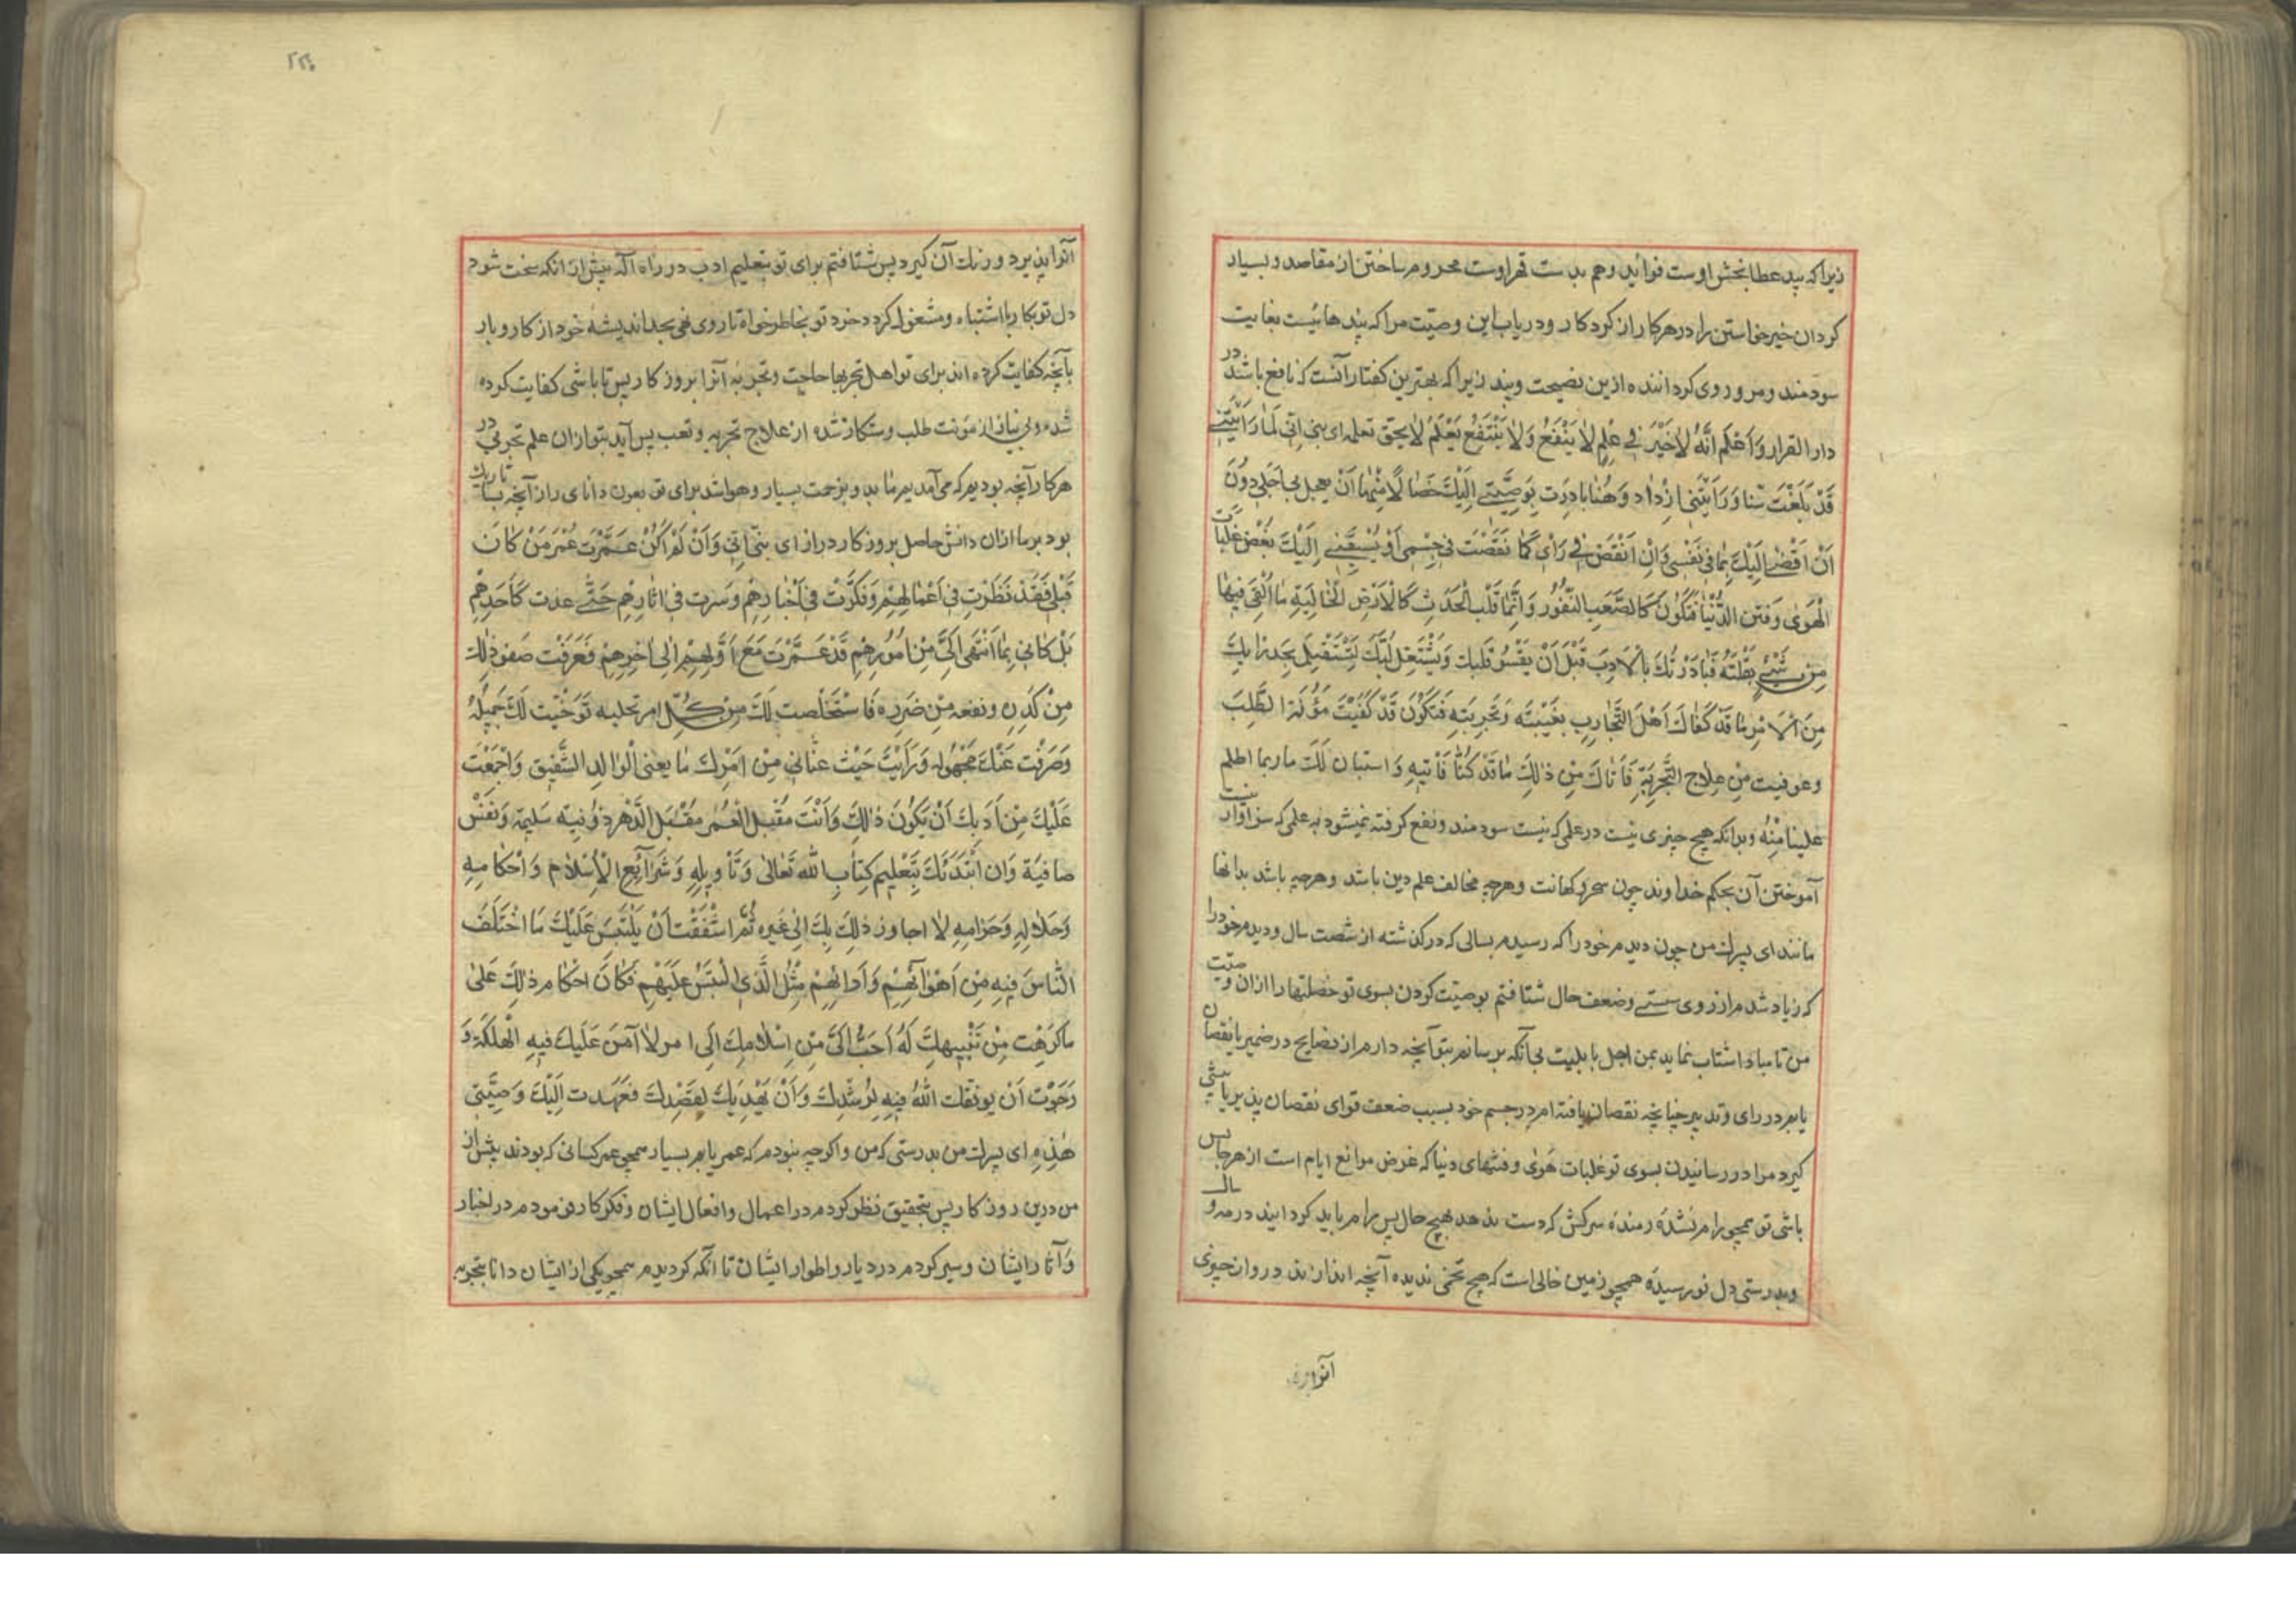 زیرا که بید عطا بخش اوست فواید وهم بدست قهر اوست محروم ساختن از مقاصد و بسیار
کردان خیر خواستن را در هر کار از کردکار و دریاب این وصیّت مرا که پند هائیست بغایت
سودمند و مرو روی کرداننده ازین نصیحت و پند زیرا که بهترین کفتار آنست که نافع باشد در
دار القرار وَاَعْلَم اَنَّهُ لاخَیْرَ فی عِلمٍ لا یَنْفَعُ وَلا یَنْتَفِعُ یَعْلَمُ لایحق تعلمه ای بنی انی لَمّا رَاَیْتَنی
قَدْ بَلَغْتَ سنا وَرَاَیْتَنی ازْداد وَهْنا بادرَت بِوَصیَّتی اِلَیْكَ خصالاً مِنْها اَنْ یعجل بی اَجَلی دُونَ
اَنْ اَفْضی اِلَیْكَ بِما فی نَفْسی وَاِن اَنْقَصَ فی رَاْی کَما نَقَصْت فی جِسْمی اَوْ یُسْبِقَنی اِلَیْكَ بَعْض غَلَبات
الْهَوی وَفتن الدُّنْیا فَتَکُونَ کَالصَّعَبِ النَّفُور وَاِنَّما قَلْب الْحَدَثِ کَالْاَرْضِ الْخالِیَةِ ما اُلْقیَ فیها
مِن شَیْئٍ بَقلَتهُ فَبادَرْتُكَ بِالْاَدِبَ قَبْلَ اَنْ یَقْسُوَ قَلبك وَیَشْتَغِل لُبُّكَ لِتَسْتَقْبِل بِجَد رَایكَ
مِنَ الْاَمْرِ ما قَدْ کَفاكَ اَهْلَ التَّجارِبِ بغیَتَه وَتَجْرِبَتِه فَتَکُونَ قَدْ کَفَیْتَ مَؤُنَة الطَّلِبَ
وعوفیت مِنْ عِلاج التَّجْرِبَةِ فَاَتاكَ مِنْ ذلِكَ ما قَدْ کُنّا فَاْتیهِ وَاستبان لَكَ ما ربما اظلم
علینا مِنْهُ وبدانکه هیچ چیزی نیست در علمی که نیست سودمند و نفع کرفته نمیشود به علمی که سزاوار نیست
آموختن آن بحکم خداوند چون سحر و کهانت وهرچه مخالف علم دین باشد وهرچه باشد بدانها
مانند ای پسرك من چون دیدم خود را که رسیدم بسالی که در کذشته از شصت سال ودیدم خود را
که زیاد شد مرا از روی سستی وضعف حال شتافتم بوصیّت کردن بسوی تو خصلتها را از ان وصیّت
من تا مبادا شتاب نماید بمن اجل یا بلیت بی آنکه برسانم بتو آنچه دارم از نصایح در ضمیر یا نقصان
یابم در رای وتدبیر چنانچه نقصان یافته ام در جسم خود بسبب ضعف قوای نقصان پذیر یا پیشی
کیرد مرا در رسانیدن بسوی تو غلبات هَوی و فتنهای دنیا که غرض موانع ایام است از هرجا پس
باشی تو همچو رام نشدۀ رمندۀ سرکش که دست ندهد بهیچ حال پس رام باید کردانید در مه و سال
وبدرستی دل نو رسیده همچو زمین خالی است که هیچ تخمی ندیده آنچه اندازند در وان چیزی
آنرا پذیرد
آنرا پذیرد ورنك آن کیرد پس شتافتم برای تو بتعلیم ادب در راه اله پیش از انکه سخت شود
دل تو بکار با اشتباه و مشغول کردد خرد تو بخاطر خواه تا روی نهی بجد اندیشه خود از کار و بار
بآنچه کفایت کرده اند برای تو اهل تجربها حاجت وتجربۀ آنرا بروز کار پس تا باشی کفایت کرده
شده وبی نیاز از مؤنت طلب وستکار شده از علاج تجربه وتعب پس آید بتو ازان علم تجربی در
هر کار آنچه بودیم که می آمدیم بدو بزحمت بسیار وهویدا شد برای تو بعون دانای راز آنچه بسا تاریك
بود بر ما ازان دانش حاصل بروز کار دراز ای بنیّ انّی وَاَنْ لَمْ اَکُنْ عَمَّرْت عُمْرَ مَنْ کانَ
قَبْلی فَقَدْ نَظَرْت فی اَعْمالِهِمْ وَفَکَّرْت فی اَخْبارِهِمْ وَسَرْت فی اثارِهِمْ حَتّی عدت کَاَحَدِهِمْ
بَلْ کَاَنّی بِما اَنْتَهی اِلَیَّ مِنْ اُمُورِهِم قَدْ عَمَّرْت مَعَ اَوَّلِهِم اِلی اخِرِهِم فَعَرَفْت صَفوَ ذلِكَ
مِنْ کَدَرِه ونفعه مِنْ ضَرَرِه فَاسْتَخْلَصت لَكَ مِنْ کُلّ امر نخلیه تَوَخَّیْت لَكَ جَمیلَهُ
وَصَرَفْت عَنْكَ مَجْهُوله وَرَاَیْتَ حَیْث عَنانی مِنْ اَمْرِك ما یعنی الْوالِد الشَّفیق وَاَجْمَعْتَ
عَلَیْكَ مِنْ اَدَبكَ اَنْ یَکُونَ ذلِكَ وَاَنْتَ مُقْبِل الْعُمُر مُقْبَل الدَّهْر ذو نیّه سَلیمَة وَنَفس
صافیَة وَان اَبْتَدَئَكَ بِتَعْلیم کِتابِ اللّه تَعالی وَتَاْویلِهِ وَشَرآئِع الْاِسْلام وَاَحْکامِهِ
وَحَلالِهِ وَحَرامِهِ لا اجاوز ذلِكَ بِكَ اِلی غَیره ثُمَّ اَشْفَقْت اَنْ یَلْتَبِسَ عَلَیْكَ مَا اخْتَلَفَ
النّاسَ فیهِ مِن اَهْوآئِهِمْ وَآرائِهِمْ مِثْلُ الَّذی الْتَبَسَ عَلَیْهِمْ فَکانَ احْکام ذلِكَ عَلی
ماکَرَهْت مِنْ تَنْبیهكَ لَهُ اَحَبُّ اِلَیَّ مِنْ اِسْلامِكَ اِلی امر لا آمَنَ عَلَیْكَ فیهِ الْهَلَکَةَ وَ
رَجَوْت اَنْ یوفّقك اللّهُ فیهِ لِرُشْدِكَ وَاَنْ یَهْدیَكَ لِقَصْدِكَ فَعَهدت اِلَیْكَ وَصِیَّتی
هذِه ای پسرك من بدرستی که من واکرچه نبودم که عمر یابم بسیار همچو عمر کسانی که بودند پیش از
من درین روز کار پس بتحقیق نظر کردم در اعمال وافعال ایشان وفکر کار فرمودم در اخبار
وَآثار ایشان وسیر کردم در دیار واطوار ایشان تا آنکه کردیدم همچو یکی از ایشان دانا بتجربه